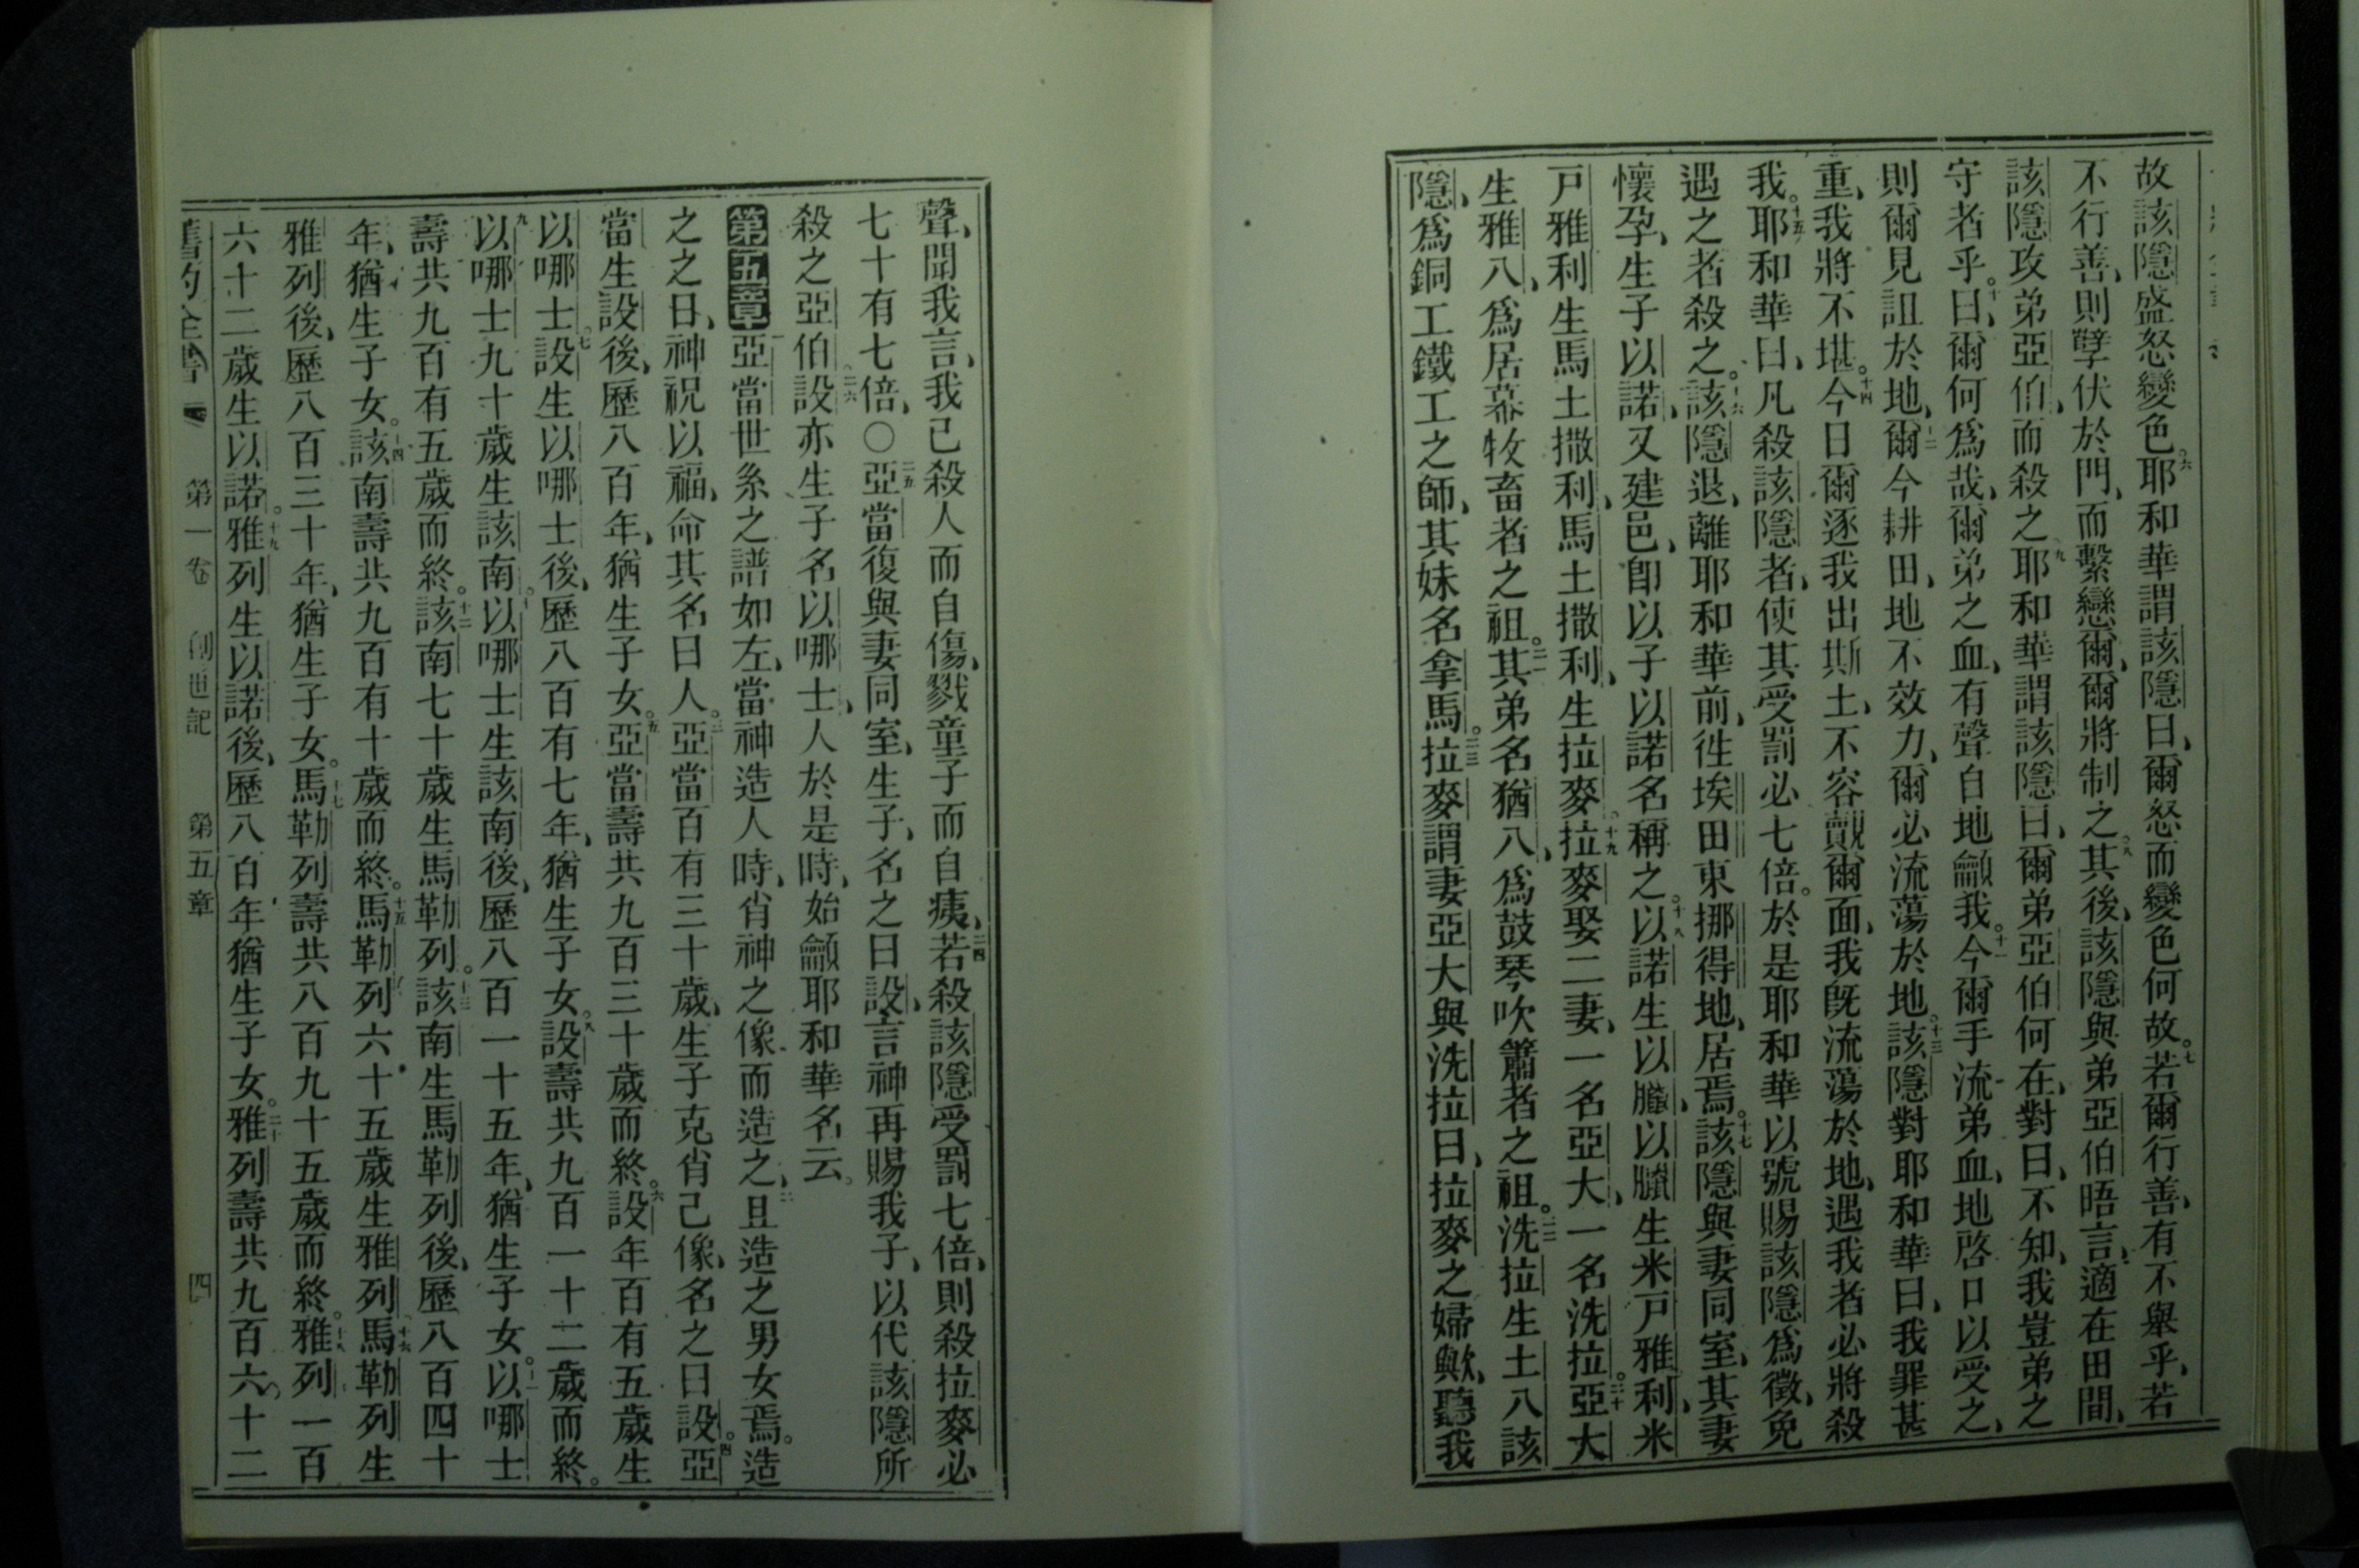 故該隱盛怒變色。六耶和華謂該隱曰、爾怒而變色何故。七若爾行善、有不舉乎、若
不行善、則孽伏於門、而繫戀爾、爾將制之。八其後、該隱與弟亞伯晤言、適在田間、
該隱攻弟亞伯、而殺之。九耶和華謂該隱曰、爾弟亞伯何在、對曰、不知、我豈弟之
守者乎。十曰、爾何爲哉、爾弟之血、有聲自地籲我。十一今爾手流弟血、地啓口以受之、
則爾見詛於地、十二爾今耕田、地不效力、爾必流蕩於地。十三該隱對耶和華曰、我罪甚
重、我將不堪。十四今日爾逐我出斯土、不容覿爾面、我旣流蕩於地、遇我者必將殺
我。十五耶和華曰、凡殺該隱者、使其受罰必七倍。於是耶和華以號賜該隱爲徵、免
遇之者殺之。十六該隱退、離耶和華前、徃埃田東挪得地、居焉。十七該隱與妻同室、其妻
懷孕、生子以諾、又建邑、卽以子以諾名稱之。十八以諾生以臘、以臘生米戸雅利、米
戸雅利生馬土撒利、馬土撒利、生拉麥。十九拉麥娶二妻、一名亞大、一名洗拉。二十亞大
生雅八、爲居幕牧畜者之祖。二一其弟名猶八、爲鼓琴吹簫者之祖。二二洗拉生土八該
隱、爲銅工鐵工之師、其妹名拿馬。二三拉麥謂妻亞大與洗拉曰、拉麥之婦歟、聽我
聲、聞我言、我已殺人而自傷、戮童子而自痍、二四若殺該隱受罰七倍、則殺拉麥必
七十有七倍、〇二五亞當復與妻同室、生子、名之曰設、言神再賜我子、以代該隱所
殺之亞伯。二六設亦生子名以哪士、人於是時、始籲耶和華名云。
第五章一亞當世系之譜如左、當神造人時、肖神之像而造之、二且造之男女焉。造
之之日、神祝以福、命其名曰人。三亞當百有三十歲、生子克肖己像、名之曰設。四亞
當生設後、歷八百年、猶生子女。五亞當壽共九百三十歲而終。六設年百有五歲生
以哪士。七設生以哪士後、歷八百有七年、猶生子女。八設壽共九百一十二歲而終。
九以哪士九十歲生該南。十以哪士生該南後、歷八百一十五年、猶生子女。十一以哪士
壽共九百有五歲而終。十二該南七十歲生馬勒列。十三該南生馬勒列後、歷八百四十
年、猶生子女。十四該南壽共九百有十歲而終。十五馬勒列六十五歲生雅列。十六馬勒列生
雅列後、歷八百三十年、猶生子女。十七馬勒列壽共八百九十五歲而終。十八雅列一百
六十二歲生以諾。十九雅列生以諾後、歷八百年猶生子女。二十雅列壽共九百六十二
舊約全書 第一卷 創世記 第五章 四